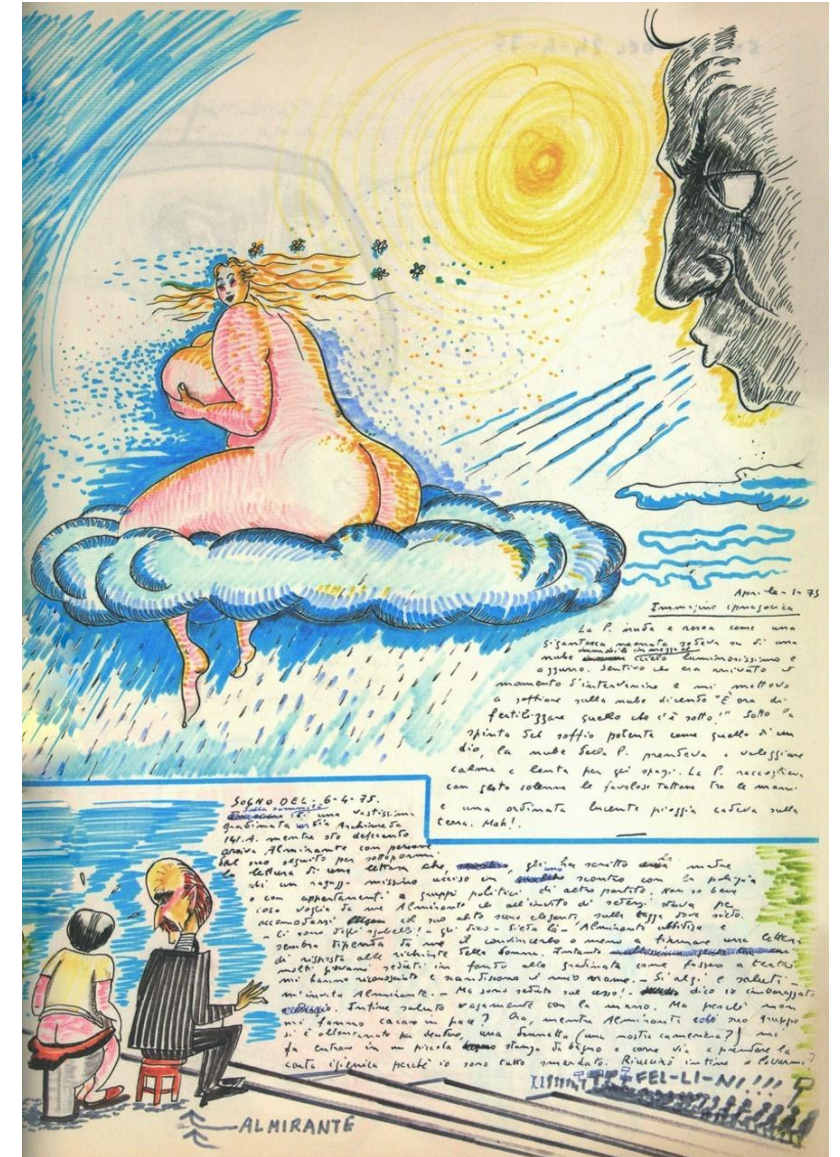 Aprile-1-75
Immagine ipnagogica
La P. nuda e rosea come una
gigantesca neonata sedeva su di una
nube in mezzo al cielo luminosissimo e
azzurro. Sentivo che era arrivato il
momento d'intervenire e mi mettevo
a soffiare sulla nube dicendo "È ora di
fertilizzare quello che c'è sotto!" Sotto la
spinta del soffio potente come quello di un
dio, la nube della P. prendeva a veleggiare
calma e lenta per gli spazi. La P. raccoglieva
con gesto solenne le favolose tettone tra le mani
e una ordinata lucente pioggia cadeva sulla
terra. Mah!.
SOGNO DEL: 6-4-75.
Sulla sommità
di una vastissima
gradinata via Archimede
141.A. mentre sto defecando
arriva Almirante con persone
del suo seguito per sottopormi
la lettura di una lettera che gli ha scritto una madre
di un ragazzo missino ucciso in uno scontro con la polizia
o con appartenenti a gruppi politici di altro partito. Non so bene
cosa voglia da me Almirante il all'invito di sedersi stava per
accomodarsi col suo abito scuro elegante, sulla tazza dove siedo.
- Ci sono degli sgabelli! - gli dico - Sieda lì - Almirante ubbidisce e
sembra dipenda da me il condividerlo o meno a firmare una lettera
di risposta alle richieste della donna. Intanto
molti giovani seduti in fondo alla gradinata come fossero a teatro
mi hanno riconosciuto e scandiscono il mio nome. - Si alzi e saluti -
m'invita Almirante. - Ma sono seduto sul cesso! - dico io imbarazzato
Infine saluto vagamente con la mano. Ma perché non
mi fanno cacare in pace? Ora, mentre Almirante col suo gruppo
si è allontanato da dentro, una brunetta (una nostra cameriera?) mi
fa entrare in un piccolo stanza da bagno a prendere la
carta igienica perché io sono tutto smerdato. Riuscirò infine a lavarmi?
FEL-LI-NI!!!
ALMIRANTE